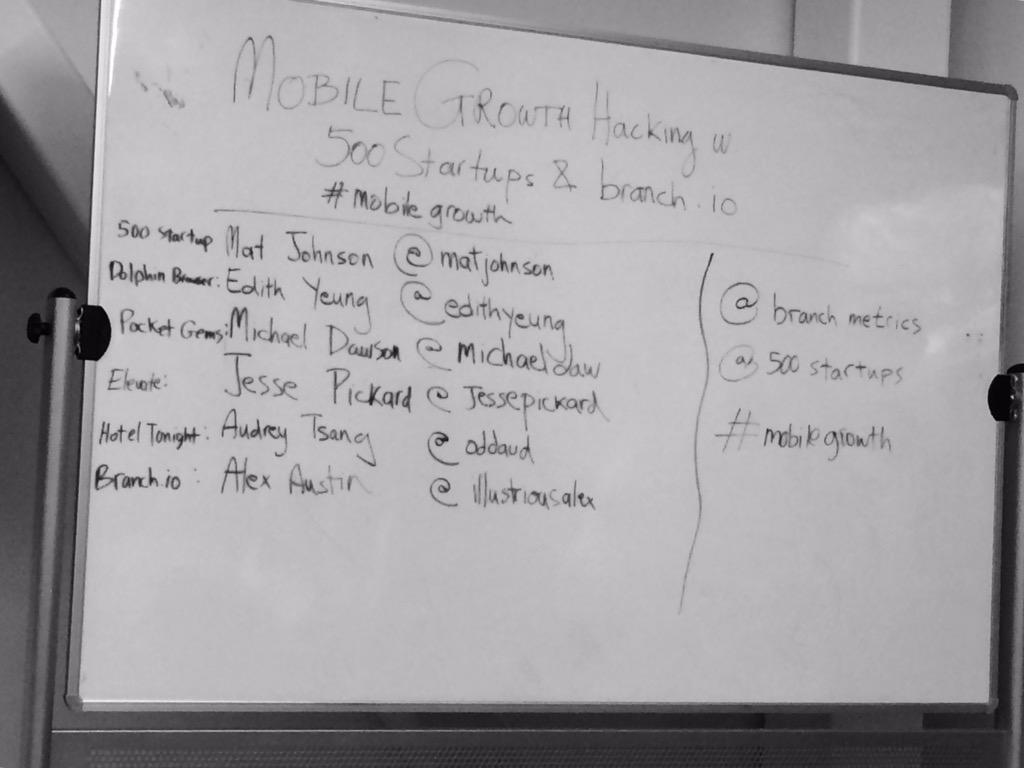 MOBILE GROWTH Hacking w
500 Startups & branch.io
#mobilegrowth
500 startup Mat Johnson @matjohnson
Dolphin Browser: Edith Yeung @edithyeung
Pocket Gems: Michael Dawson @Michaeldaw
Elevate: Jesse Pickard @Jessepickard
Hotel Tonight: Audrey Tsang @oddaud
Branch.io: Alex Austin @illustriousalex
@branch metrics
@500 startups
#mobilegrowth